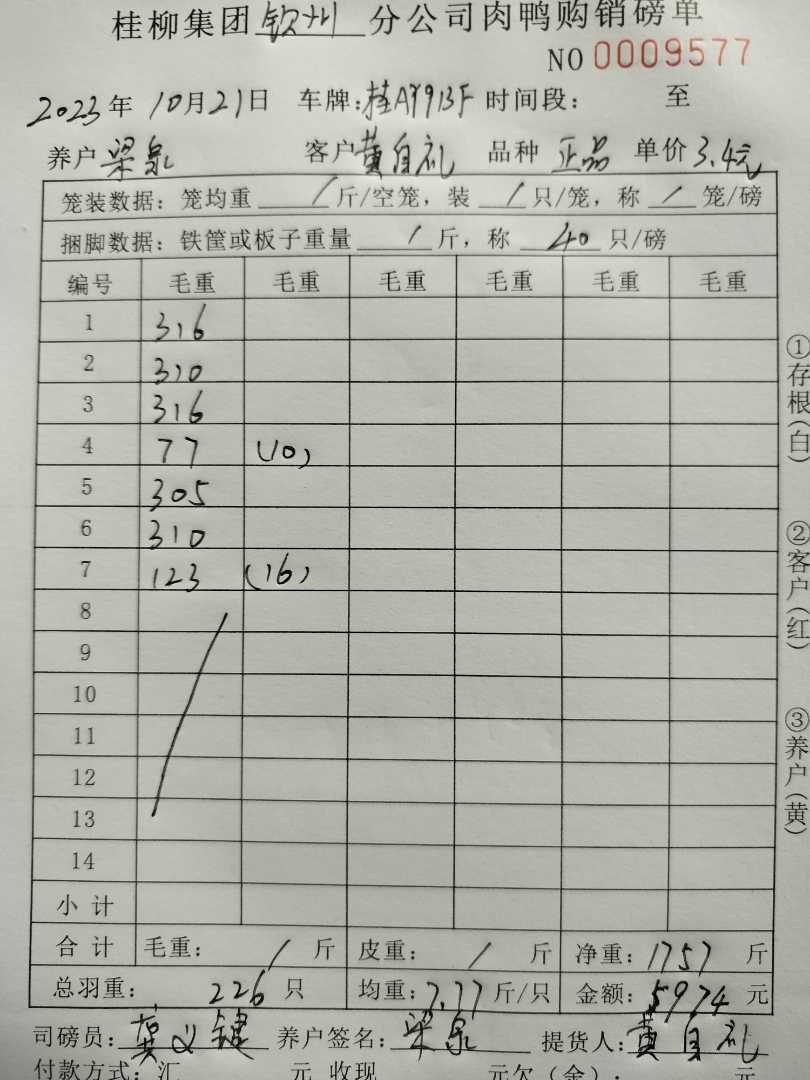 桂柳集团钦州分公司肉鸭购销磅单
NO 0009577
2023年10月21日 车牌:桂AY913F 时间段: 至
养户 梁泉 客户 黄自礼 品种 正品 单价 3.4元
笼装数据: 笼均重 / 斤/空笼, 装 / 只/笼, 称 / 笼/磅
捆脚数据: 铁筐或板子重量 / 斤, 称 40 只/磅
编号 毛重 毛重 毛重 毛重 毛重 毛重
1 316
2 310
3 316
4 77 (10)
5 305
6 310
7 123 (16)
8
9
10
11
12
13
14
小计
合计 毛重: / 斤 皮重: / 斤 净重: 1757 斤
总羽重: 226 只 均重: 7.77 斤/只 金额: 5974 元
司磅员: 龚义键 养户签名: 梁泉 提货人: 黄自礼
付款方式: 汇 元 收现 元欠(余): 元
①存根(白)
②客户(红)
③养户(黄)